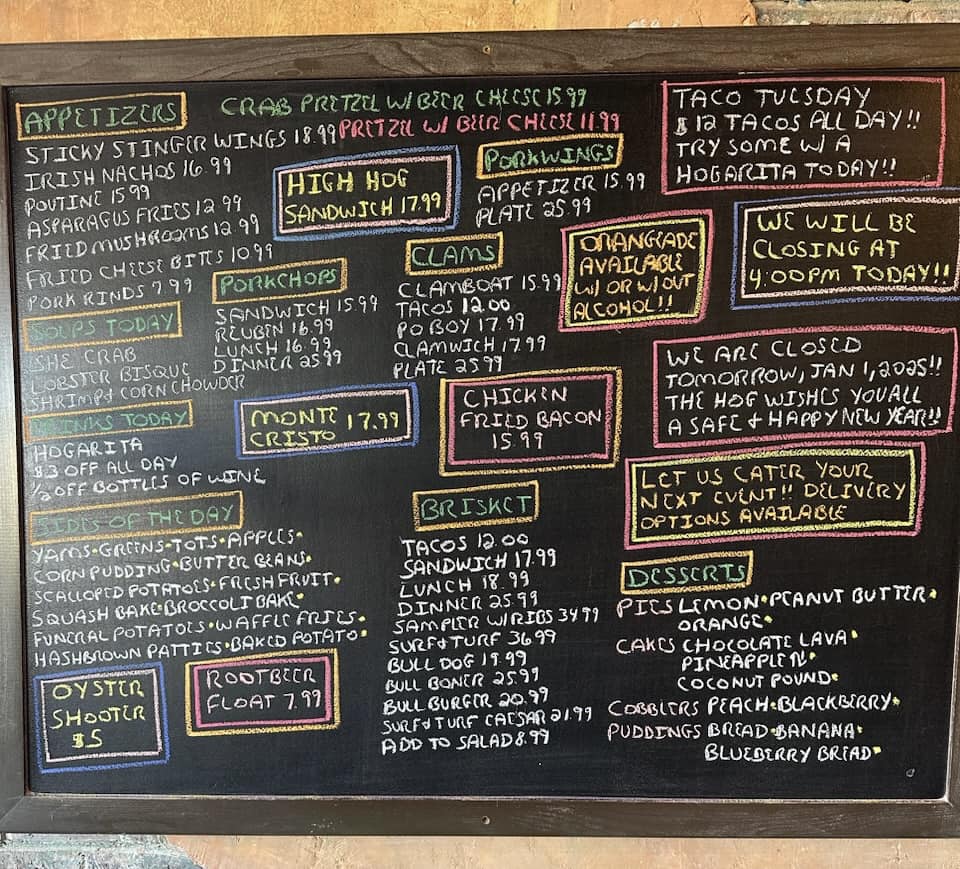 APPETIZERS
CRAB PRETZEL W/ BEER CHEESE 15.99
PRETZEL W/ BEER CHEESE 11.99
STICKY STINGER WINGS 18.99
IRISH NACHOS 16.99
POUTINE 15.99
ASPARAGUS FRIES 12.99
FRIED MUSHROOMS 12.99
FRIED CHEESE BITES 10.99
PORK RINDS 7.99
SOUPS TODAY
SHE CRAB
LOBSTER BISQUE
SHRIMP & CORN CHOWDER
DRINKS TODAY
HOGARITA
$3 OFF ALL DAY
1/2 OFF BOTTLES OF WINE
SIDES OF THE DAY
YAMS • GREENS • TOTS • APPLES •
CORN PUDDING • BUTTER BEANS •
SCALLOPED POTATOES • FRESH FRUIT •
SQUASH BAKE • BROCCOLI BAKE •
FUNERAL POTATOES • WAFFLE FRIES •
HASHBROWN PATTIES • BAKED POTATO •
OYSTER
SHOOTER
$5
ROOTBEER
FLOAT 7.99
HIGH HOG
SANDWICH 17.99
PORKCHOPS
SANDWICH 15.99
REUBEN 16.99
LUNCH 16.99
DINNER 25.99
MONTE
CRISTO 17.99
PORKWINGS
APPETIZER 15.99
PLATE 25.99
CLAMS
CLAMBOAT 15.99
TACOS 12.00
PO BOY 17.99
CLAMWICH 17.99
PLATE 25.99
CHICKEN
FRIED BACON
15.99
BRISKET
TACOS 12.00
SANDWICH 17.99
LUNCH 18.99
DINNER 25.99
SAMPLER W/ RIBS 34.99
SURF & TURF 36.99
BULL DOG 19.99
BULL BONER 25.99
BULL BURGER 20.99
SURF & TURF CAESAR 21.99
ADD TO SALAD 8.99
TACO TUESDAY
$12 TACOS ALL DAY!!
TRY SOME W/ A
HOGARITA TODAY!!
ORANGEADE
AVAILABLE
W/ OR W/OUT
ALCOHOL!!
WE WILL BE
CLOSING AT
4:00PM TODAY!!
WE ARE CLOSED
TOMORROW, JAN 1, 2025!!
THE HOG WISHES YOU ALL
A SAFE & HAPPY NEW YEAR!!
LET US CATER YOUR
NEXT EVENT!! DELIVERY
OPTIONS AVAILABLE
DESSERTS
PIES LEMON • PEANUT BUTTER •
ORANGE •
CAKES CHOCOLATE LAVA •
PINEAPPLE N •
COCONUT POUND •
COBBLERS PEACH • BLACKBERRY •
PUDDINGS BREAD • BANANA •
BLUEBERRY BREAD •